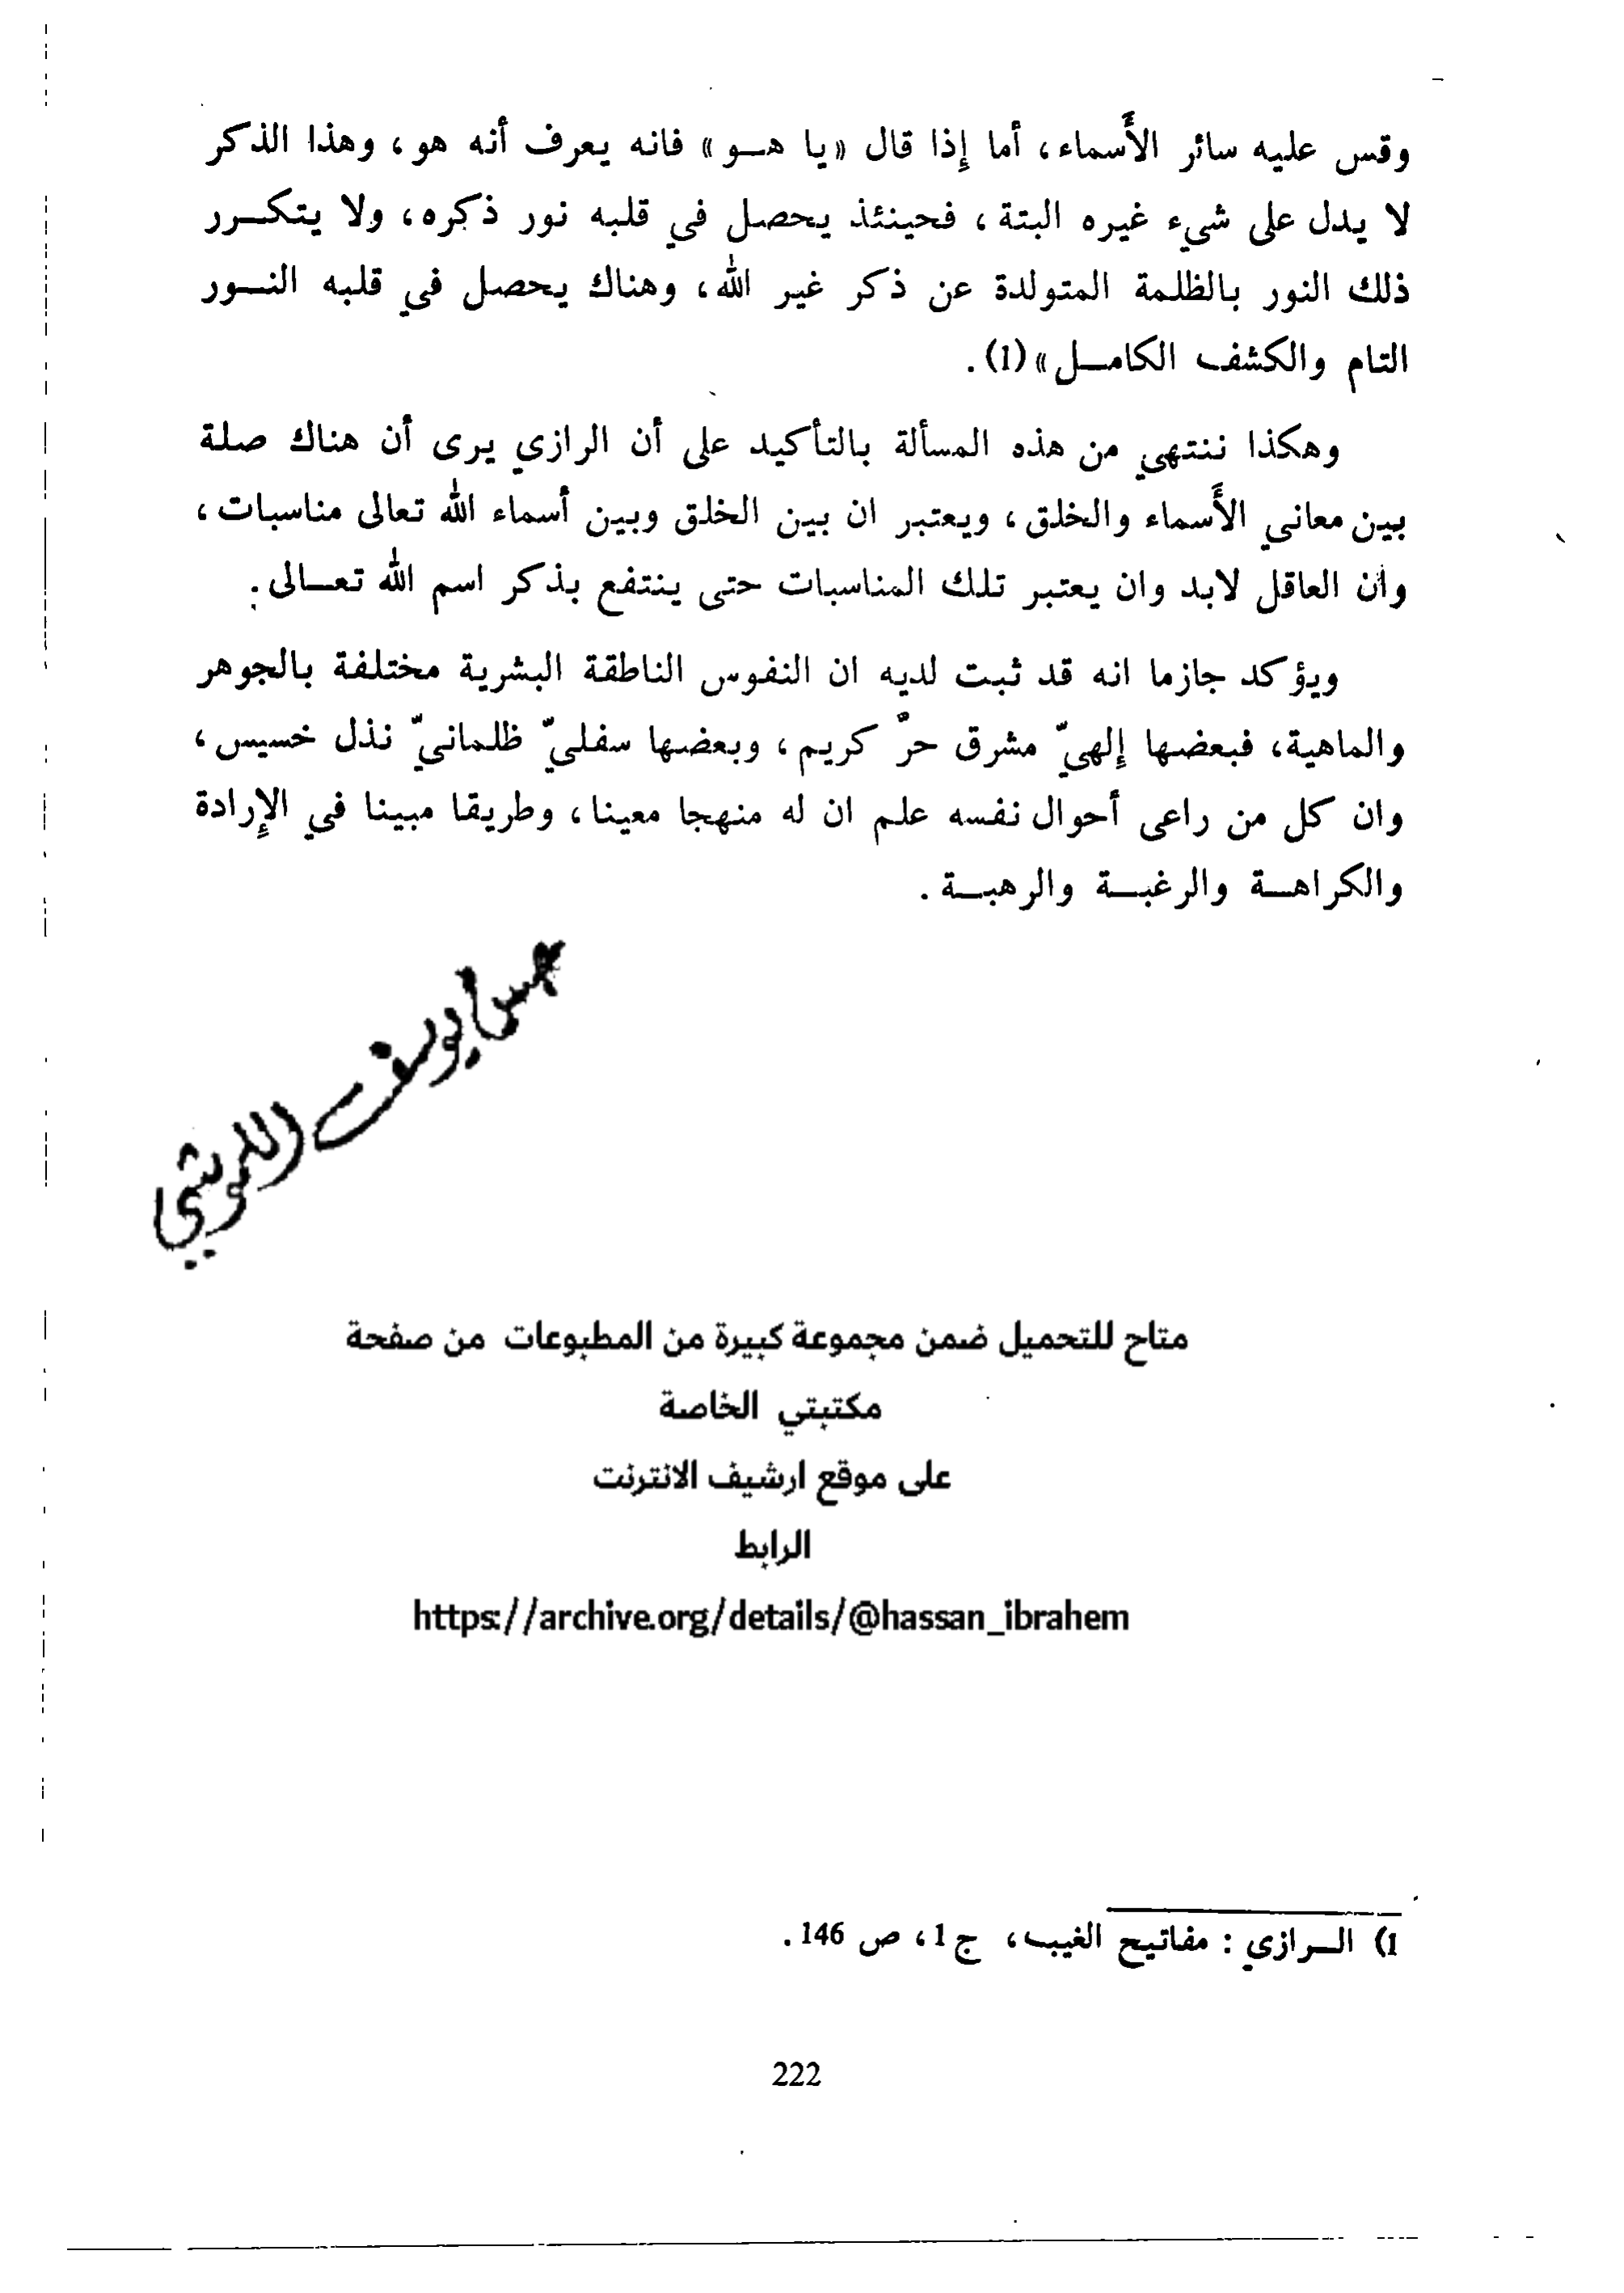 وقس عليه سائر الأَسماء، أما إذا قال «يا هـو» فانه يعرف أنه هو، وهذا الذكر
لا يدل على شيء غيره البتة، فحينئذ يحصل في قلبه نور ذكره، ولا يتكـرر
ذلك النور بالظلمة المتولدة عن ذكر غير الله، وهناك يحصل في قلبه النـور
التام والكشف الكامـل»(1).
وهكذا ننتهي من هذه المسألة بالتأكيد على أن الرازي يرى أن هناك صلة
بين معاني الأَسماء والخلق، ويعتبر ان بين الخلق وبين أسماء الله تعالى مناسبات،
وأن العاقل لابد وان يعتبر تلك المناسبات حتى ينتفع بذكر اسم الله تعـالى.
ويؤكد جازما انه قد ثبت لديه ان النفوس الناطقة البشرية مختلفة بالجوهر
والماهية، فبعضها إلهيّ مشرق حرّ كريم، وبعضها سفليّ ظلمانيّ نذل خسيس،
وان كل من راعى أحوال نفسه علم ان له منهجا معينا، وطريقا مبينا في الإرادة
والكراهـة والرغبـة والرهبـة.
يوسف
متاح للتحميل ضمن مجموعة كبيرة من المطبوعات من صفحة
مكتبتي الخاصة
على موقع ارشيف الانترنت
الرابط
https://archive.org/details/@hassan_ibrahem
1) الـرازي : مفاتيح الغيب، ج 1، ص 146.
222